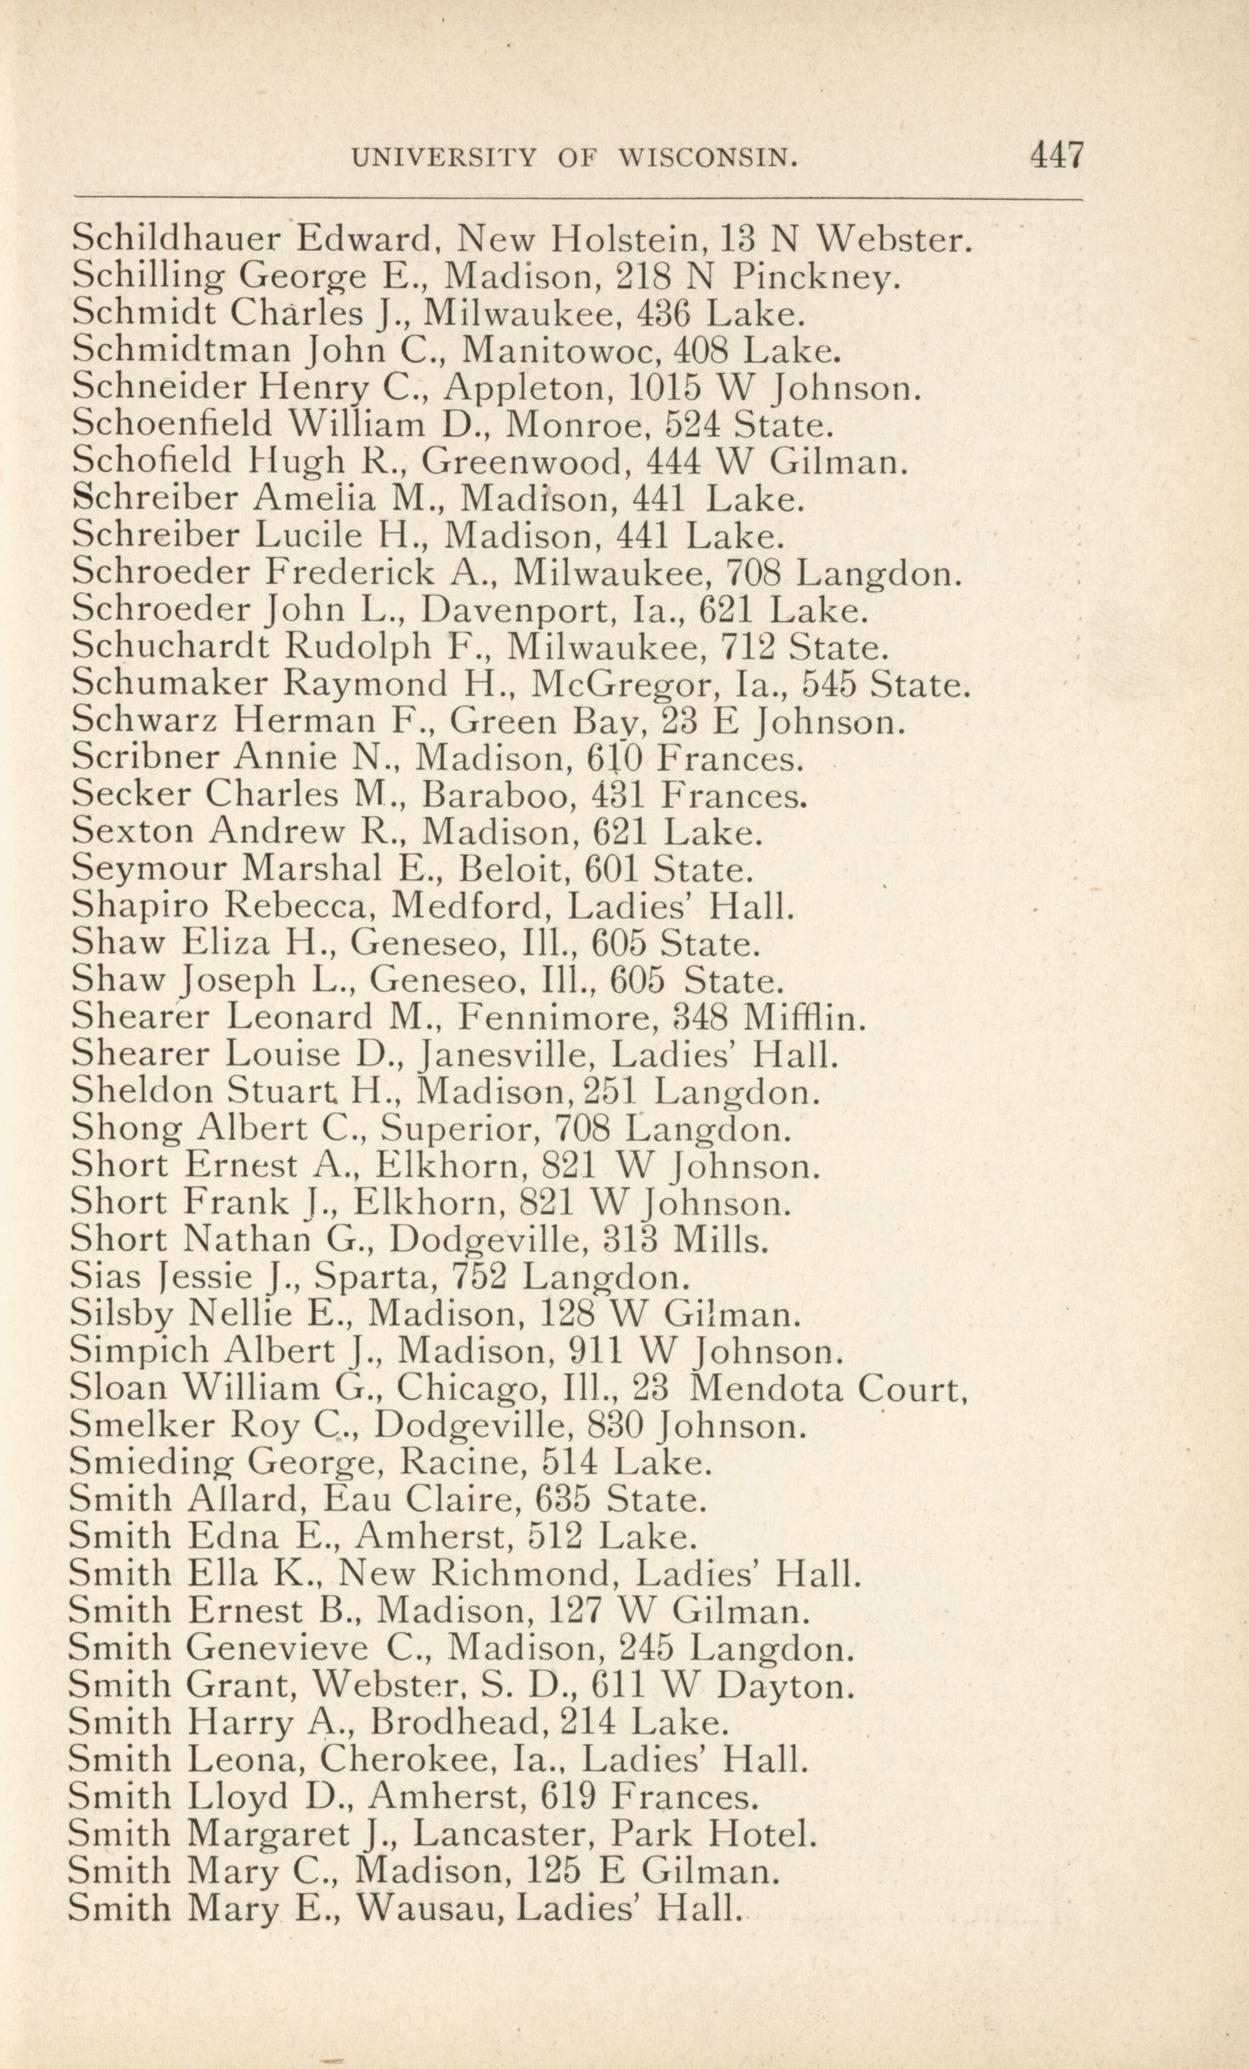 UNIVERSITY OF WISCONSIN. 447
Schildhauer Edward, New Holstein, 13 N Webster.
Schilling George E., Madison, 218 N Pinckney.
Schmidt Charles J., Milwaukee, 436 Lake.
Schmidtman John C., Manitowoc, 408 Lake.
Schneider Henry C., Appleton, 1015 W Johnson.
Schoenfield William D., Monroe, 524 State.
Schofield Hugh R., Greenwood, 444 W Gilman.
Schreiber Amelia M., Madison, 441 Lake.
Schreiber Lucile H., Madison, 441 Lake.
Schroeder Frederick A., Milwaukee, 708 Langdon.
Schroeder John L., Davenport, Ia., 621 Lake.
Schuchardt Rudolph F., Milwaukee, 712 State.
Schumaker Raymond H., McGregor, Ia., 545 State.
Schwarz Herman F., Green Bay, 23 E Johnson.
Scribner Annie N., Madison, 610 Frances.
Secker Charles M., Baraboo, 431 Frances.
Sexton Andrew R., Madison, 621 Lake.
Seymour Marshal E., Beloit, 601 State.
Shapiro Rebecca, Medford, Ladies' Hall.
Shaw Eliza H., Geneseo, Ill., 605 State.
Shaw Joseph L., Geneseo, Ill., 605 State.
Shearer Leonard M., Fennimore, 348 Mifflin.
Shearer Louise D., Janesville, Ladies' Hall.
Sheldon Stuart H., Madison, 251 Langdon.
Shong Albert C., Superior, 708 Langdon.
Short Ernest A., Elkhorn, 821 W Johnson.
Short Frank J., Elkhorn, 821 W Johnson.
Short Nathan G., Dodgeville, 313 Mills.
Sias Jessie J., Sparta, 752 Langdon.
Silsby Nellie E., Madison, 128 W Gilman.
Simpich Albert J., Madison, 911 W Johnson.
Sloan William G., Chicago, Ill., 23 Mendota Court,
Smelker Roy C., Dodgeville, 830 Johnson.
Smieding George, Racine, 514 Lake.
Smith Allard, Eau Claire, 635 State.
Smith Edna E., Amherst, 512 Lake.
Smith Ella K., New Richmond, Ladies' Hall.
Smith Ernest B., Madison, 127 W Gilman.
Smith Genevieve C., Madison, 245 Langdon.
Smith Grant, Webster, S. D., 611 W Dayton.
Smith Harry A., Brodhead, 214 Lake.
Smith Leona, Cherokee, Ia., Ladies' Hall.
Smith Lloyd D., Amherst, 619 Frances.
Smith Margaret J., Lancaster, Park Hotel.
Smith Mary C., Madison, 125 E Gilman.
Smith Mary E., Wausau, Ladies' Hall.